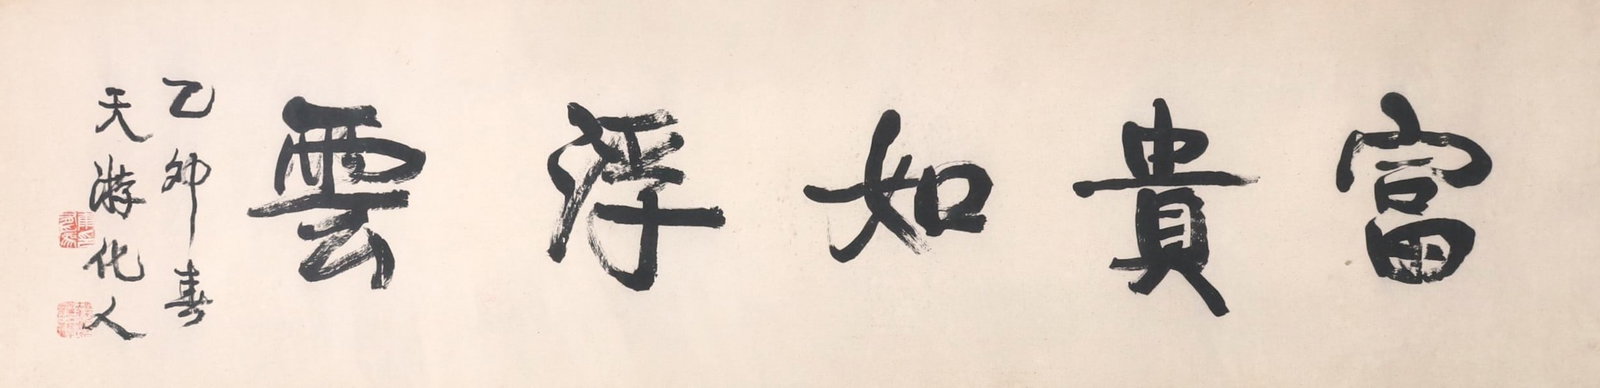 富貴如浮雲
乙卯春
天游化人